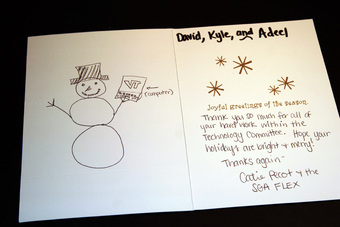 David, Kyle, and Adeel
VT
(computer)
Joyful greetings of the season
Thank you so much for all of
your hard work within the
Technology Committee. Hope your
holidays are bright & merry!
Thanks again-
Catie Pecot & the
SGA FLEX